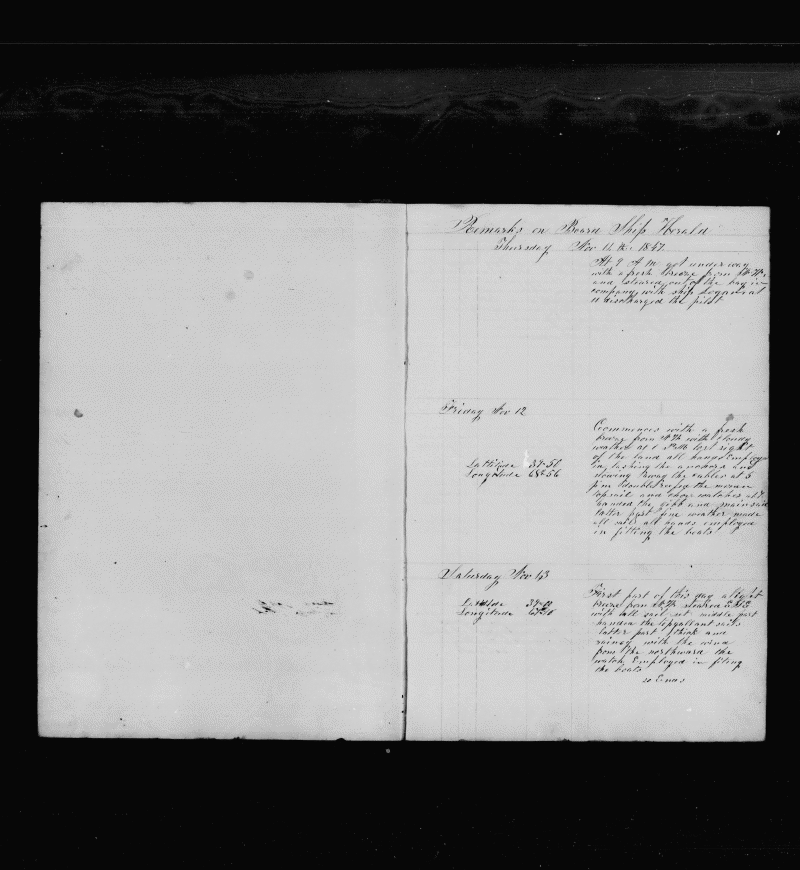 Remarks on Board Ship Herald
Thursday Nov 11 th 1847
At 9 A M got under way
with a fresh breeze from
and steared out of the bay in
company with ship Logan at
11 discharged the pilot
Friday Nov 12
Commences with a fresh
breeze from with cloudy
weather at P M lost sight
of the land all hands Employ
in lashing the anchors and
stowing away the cables at 5
p m doublereefed the mizen
topsail and chose watches at 7
handed the gibb and mainsail
latter part fine weather made
all sail all hands employed
in fitting the boats
Lattitude 39-50
Longitude 68-56
Saturday Nov 13
First part of this day a light
breeze from steared
with all sail set middle part
handed the topgallant sails
latter part thick and
rainey with the wind
from the northward the
watch Employed in fiting
the boats
so Ends
Lattitude
Longitude